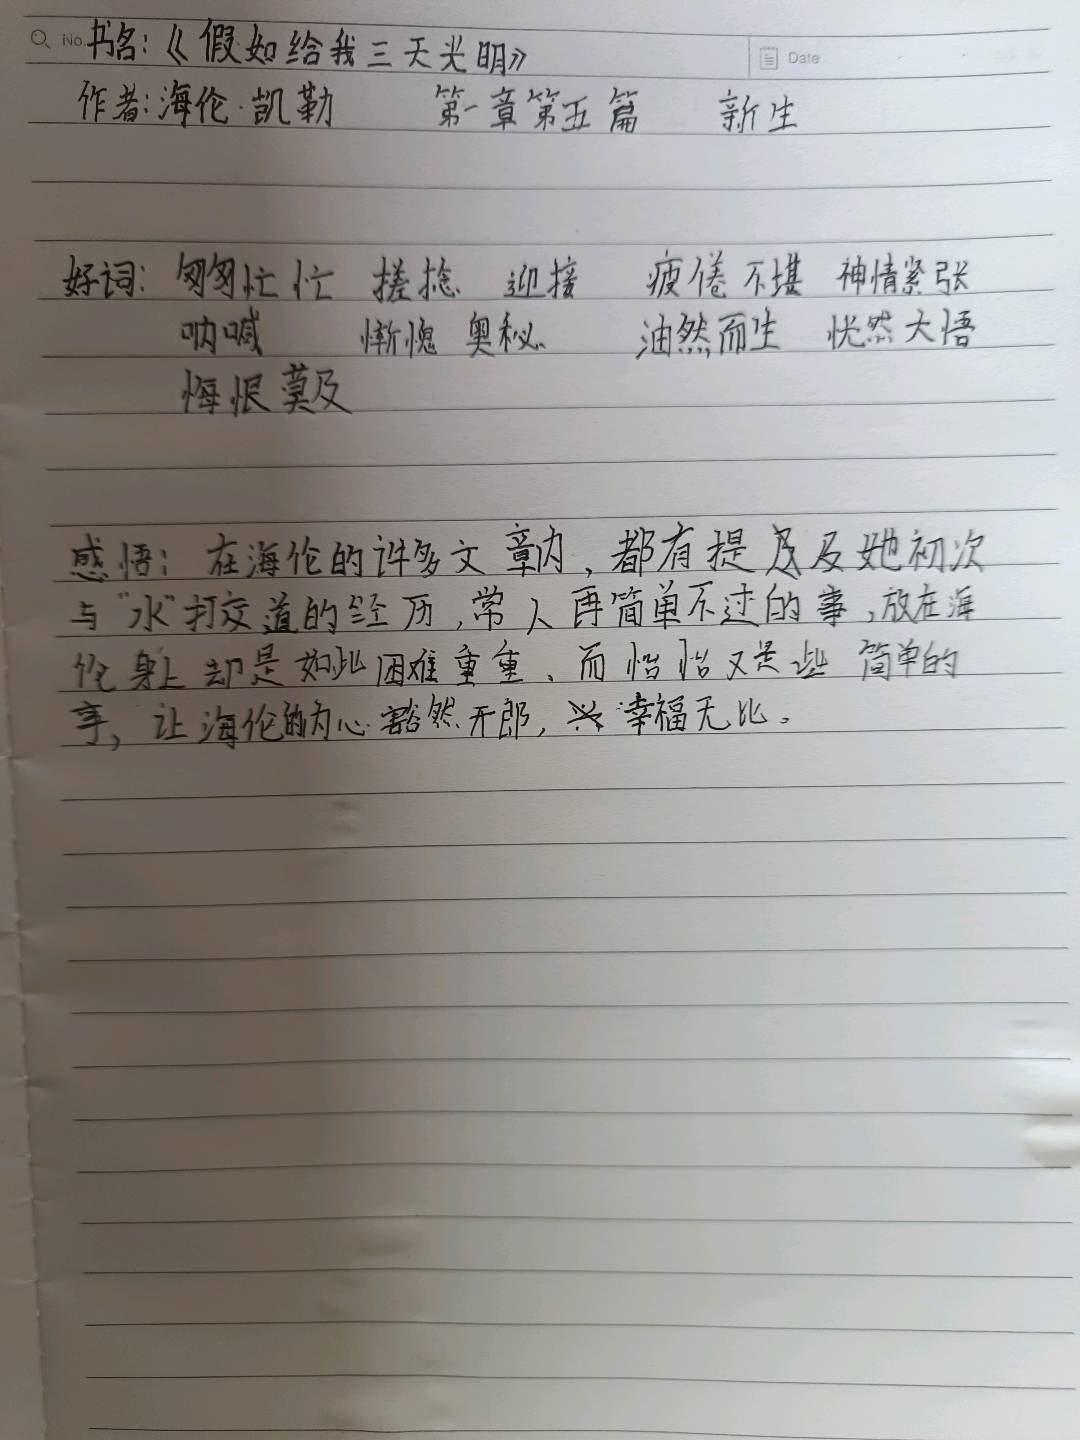 No. 书名:《假如给我三天光明》 Date
作者:海伦·凯勒 第一章第五篇 新生
好词: 匆匆忙忙 搓捻 迎接 疲倦不堪 神情紧张
呐喊 惭愧 奥秘 油然而生 恍然大悟
悔恨莫及
感悟: 在海伦的许多文章内,都有提及她初次
与“水”打交道的经历,常人再简单不过的事,放在海
伦身上却是如此困难重重、而恰恰又是些简单的
事,让海伦的内心豁然开郎,幸福无比。